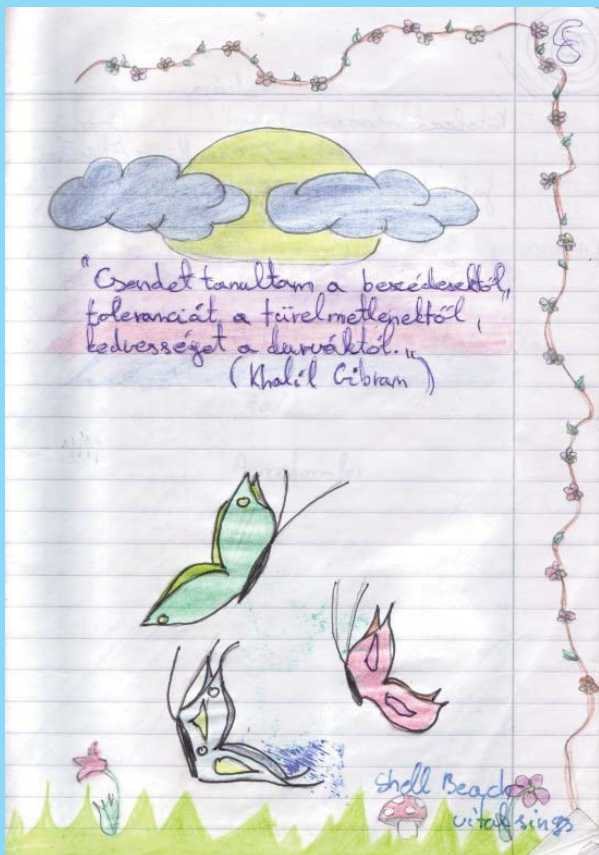 8
"Csendet tanultam a beszédesektől,
toleranciát a türelmetlenektől,
kedvességet a durváktól."
(Khalíl Gibram)
Shell Beach
vital sings